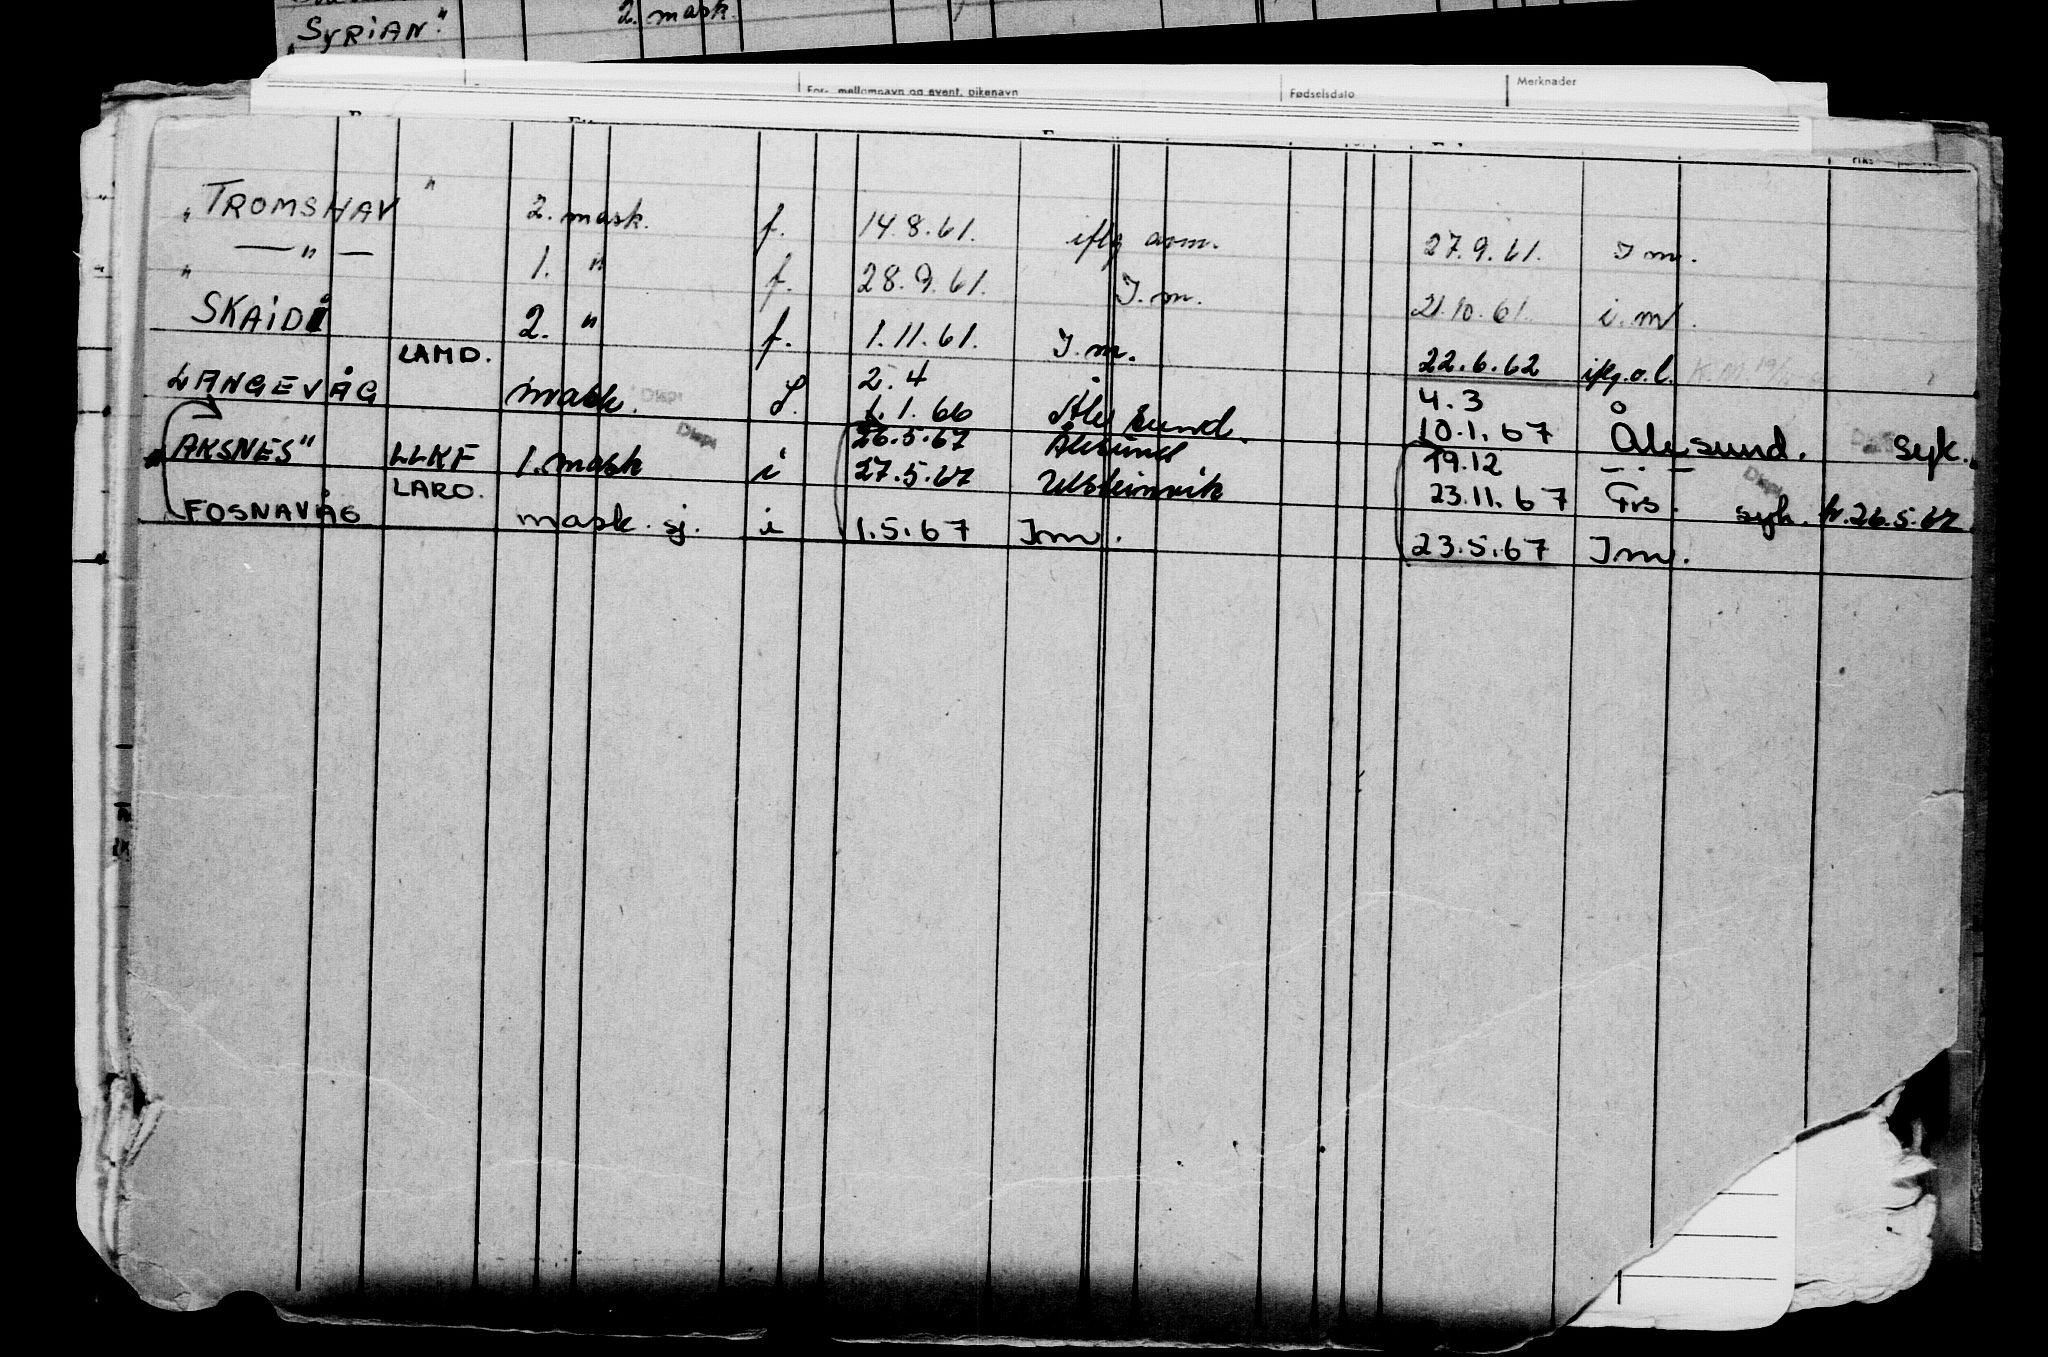 „SYRIAN." 2. mask.
For-, mellomnavn og event. pikenavn Fødselsdato Merknader
„TROMSHAV" 2. mask. f. 14.8.61. iflg avm. 27.9.61. I m.
„ — " — 1. " f. 28.9.61. I.m. 21.10.61. i.m.
SKAIDI 2. " f. 1.11.61. I.m. 22.6.62 iflg.o.l.
LAMD. 2.4 4.3
LANGEVÅG mask. S. 1.1.66 Ålesund. 10.1.67 Ålesund. syk.
26.5.67 Ålesund 19.12 — . —
„AKSNES" LLKF 1. mask i 27.5.67 Ulsteinvik 23.11.67 Frs. syk. fr. 26.5.67
LARO.
FOSNAVÅG mask. sj. i 1.5.67 I.m. 23.5.67 I.m.